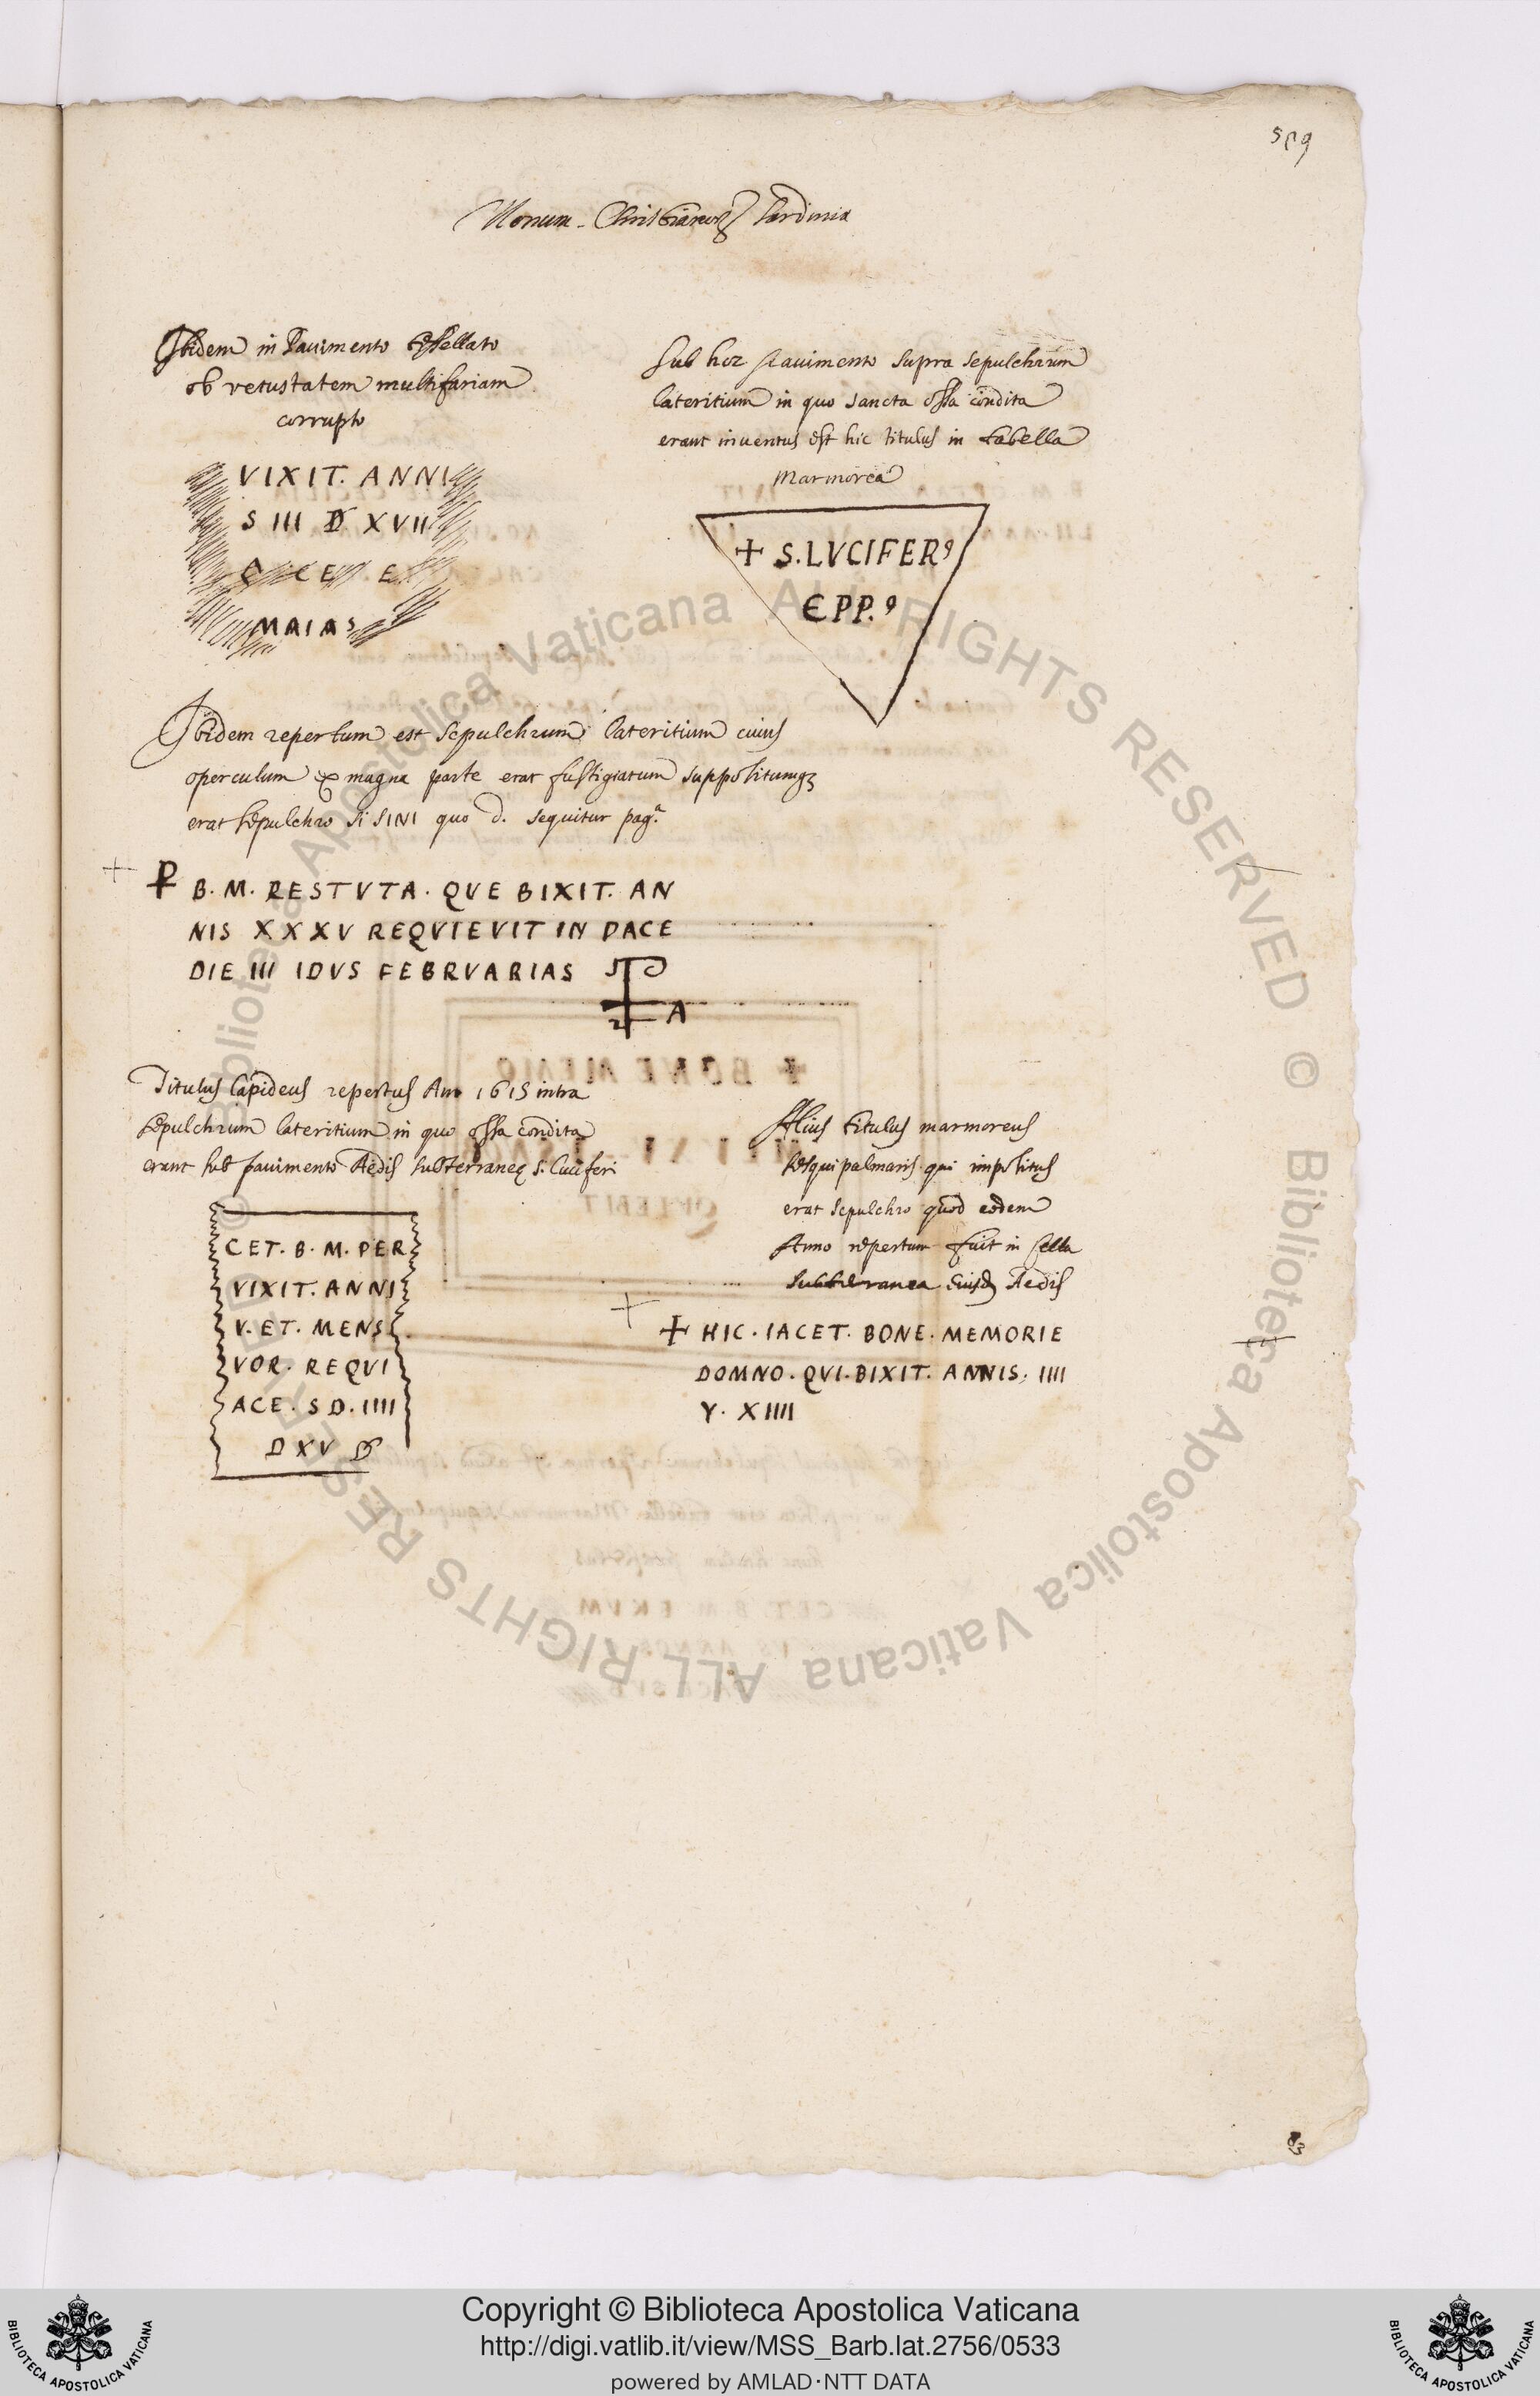 509
Monum. Christianorꝝ Sardiniæ
Ibidem in Pauimento tessellato
ob vetustatem multifariam
corrupto
VIXIT. ANNI
S III D XVII
CE E
MAIAS
Sub hoc pauimento supra sepulchrum
lateritium in quo sancta ossa condita
erant inuentus est hic titulus in tabella
marmorea
+ S. LVCIFERꝰ
EPP.ꝰ
Ibidem repertum est sepulchrum lateritium cuius
operculum ex magna parte erat fastigiatum suppositumqꝫ
erat sepulchro SiSINI quo d. sequitur pag.ª
+ ⳨ B. M. RESTVTA. QVE BIXIT. AN
NIS XXXV REQVIEVIT IN PACE
DIE III IDVS FEBRVARIAS
A
Titulus lapideus repertus Ann 1615 intra
sepulchrum lateritium in quo ossa condita
erant sub pauimento Aedis subterraneę S. Luciferi
CET. B. M. PER
VIXIT. ANNI
V. ET. MENS
VOR. REQVI
ACE. S D. IIII
D XV D
Alius titulus marmoreus
sesquipalmaris qui impositus
erat sepulchro quod eodem
Anno repertum fuit in cella
subterranea eiusd Aedis
+ HIC. IACET. BONE. MEMORIE
DOMNO. QVI. BIXIT. ANNIS. IIII
Y. XIIII
83
© Biblioteca Apostolica Vaticana ALL RIGHTS RESERVED © Biblioteca Apostolica Vaticana ALL RIGHTS RESERVED
Copyright © Biblioteca Apostolica Vaticana
http://digi.vatlib.it/view/MSS_Barb.lat.2756/0533
powered by AMLAD·NTT DATA
BIBLIOTECA APOSTOLICA VATICANA
BIBLIOTECA APOSTOLICA VATICANA